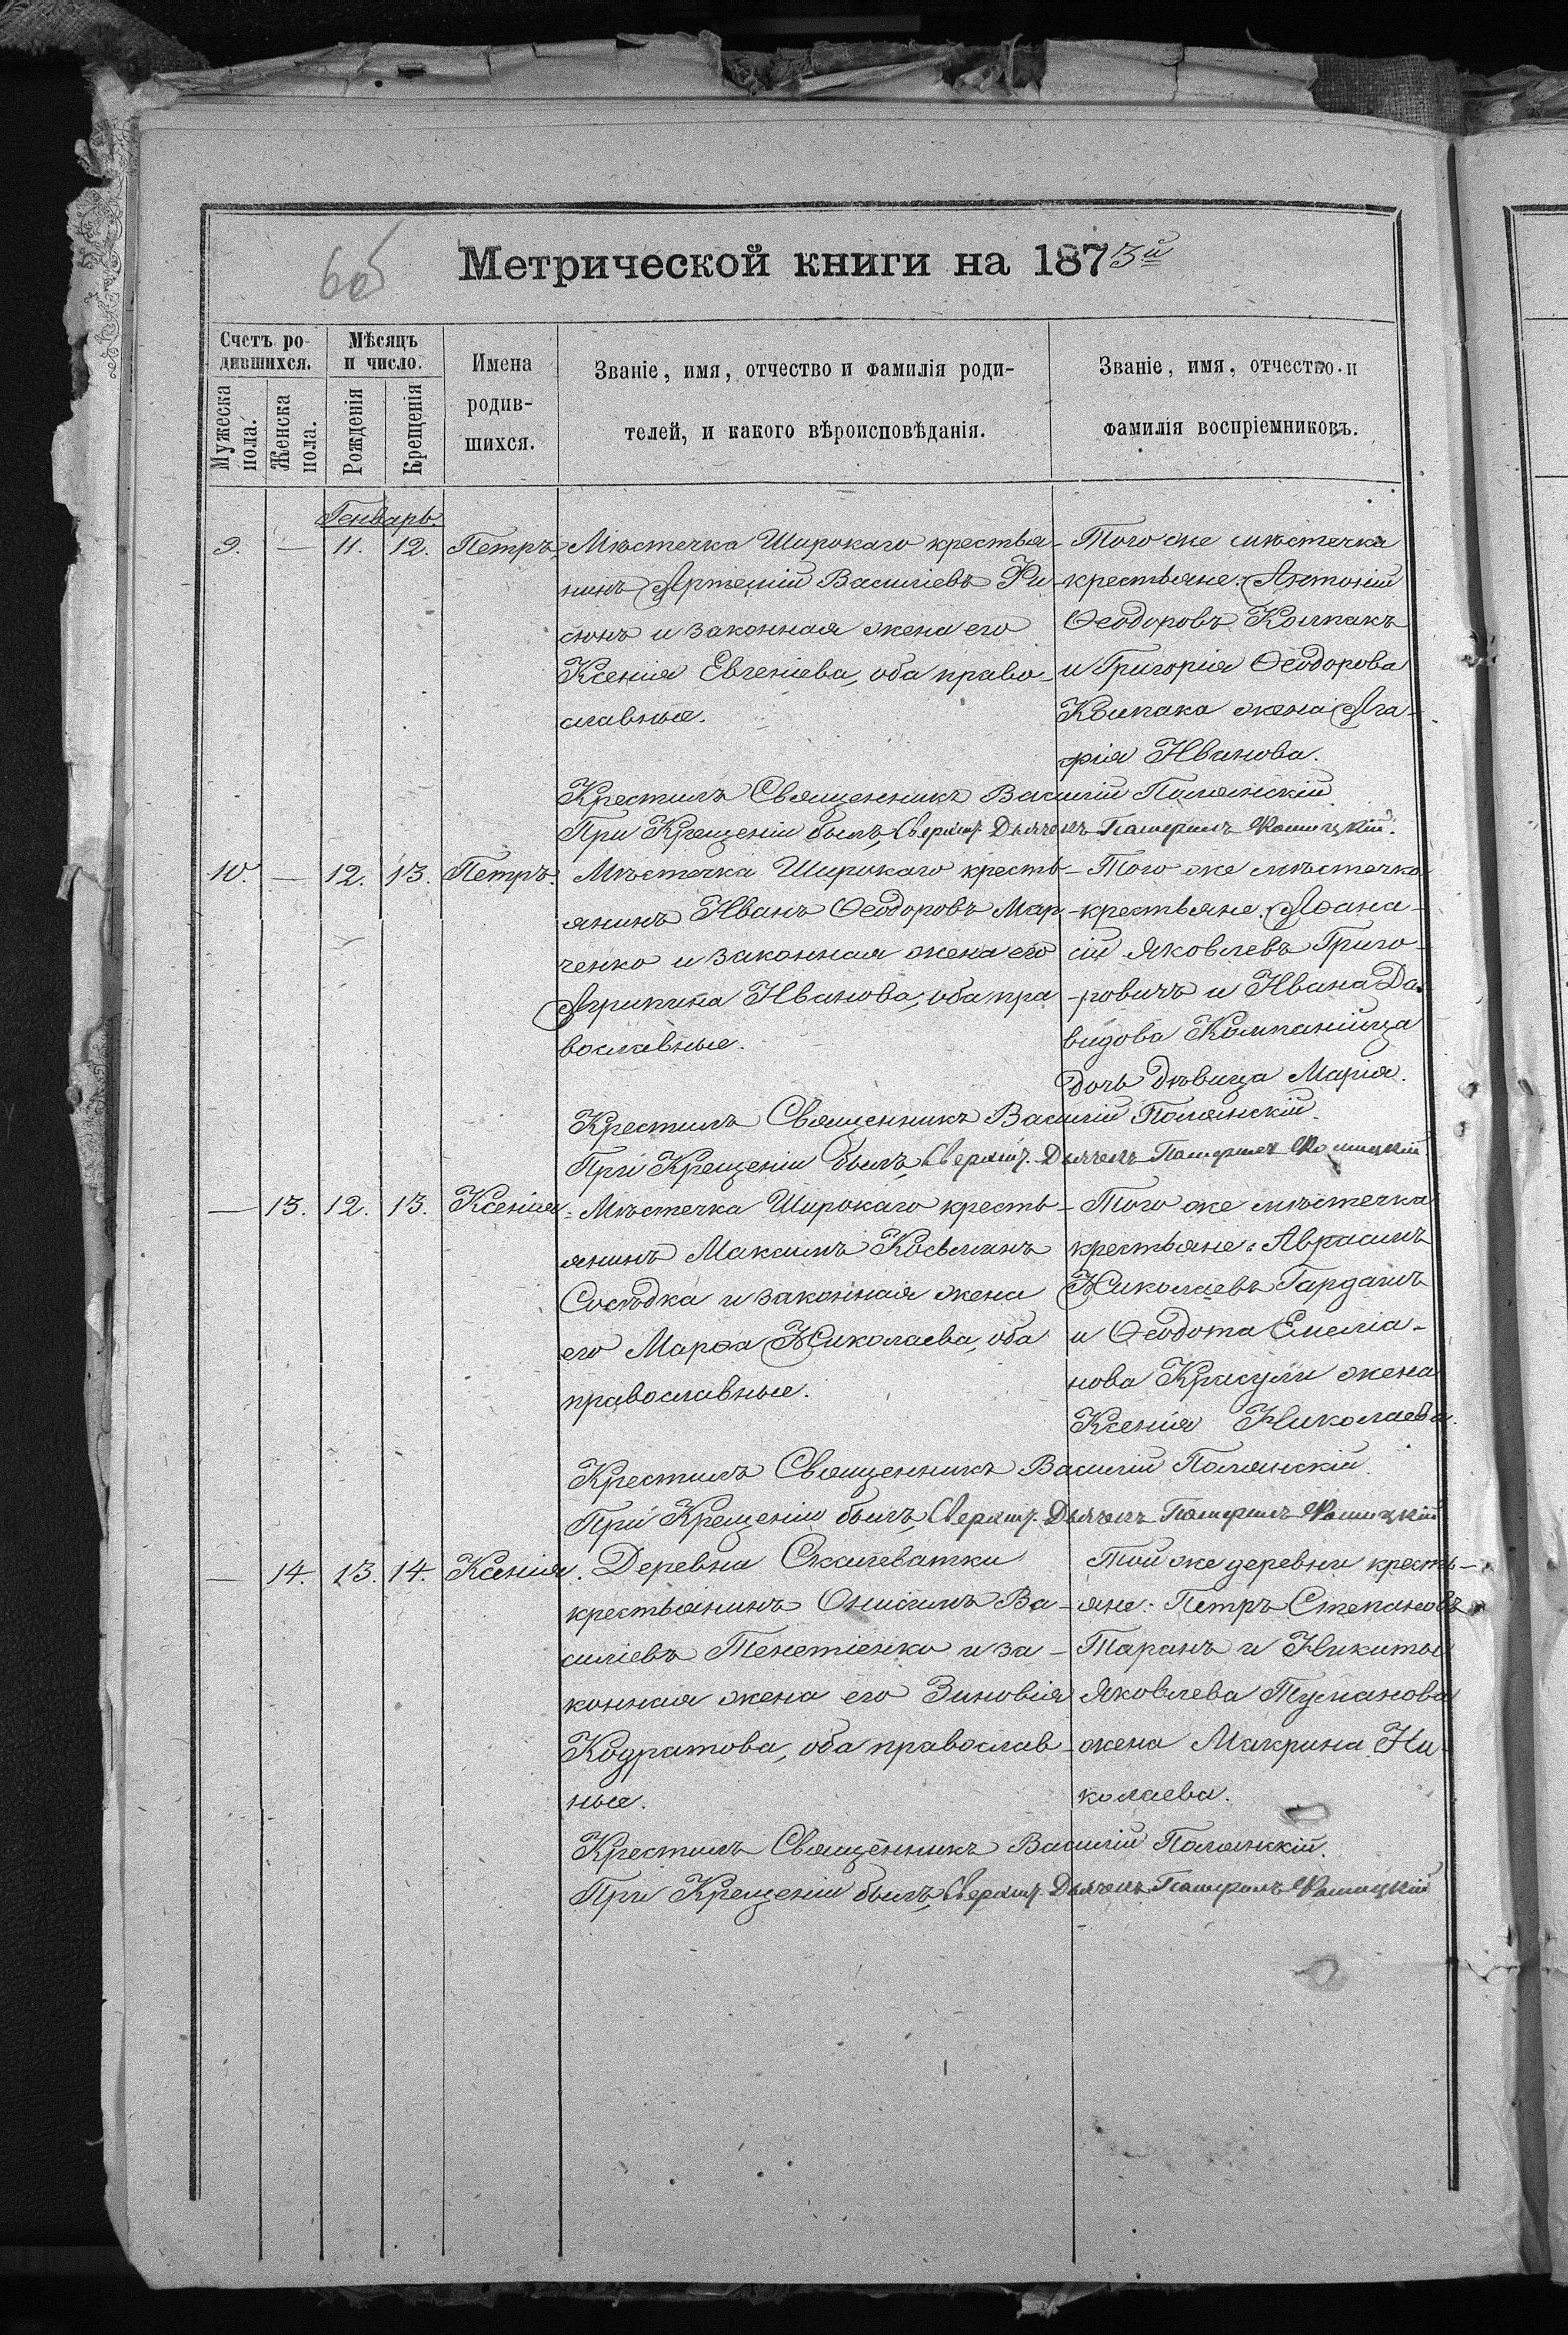 6об
Метрической книги на 1873й
Счетъ ро-
дившихся.
Мужеска пола.
Женска пола.
Мѣсяцъ
и число.
Рожденія
Крещенія
Имена
родив-
шихся.
Званіе, имя, отчество и фамилія роди-
телей, и какого вѣроисповѣданія.
Званіе, имя, отчество и
фамилія воспріемниковъ.
Генварь.
9. — 11. 12. Петръ
Мѣстечка Широкаго крестья-
нинъ Артемій Василіевъ Фи-
сюнъ и законная жена его
Ксенія Евгеніева, оба право-
славные.
Того же мѣстечка
крестьяне: Антоній
Ѳеодоровъ Колпакъ
и Григорія Ѳеодорова
Колпака жена Ага-
фія Иванова.
Крестилъ Священникъ Василій Полянскій
При Крещеніи былъ, Сверхшт. Дьячекъ
10. — 12. 13. Петръ.
Мѣстечка Широкаго кресть-
янинъ Иванъ Ѳеодоровъ Мар-
ченко и законная жена его
Агрипина Иванова, оба пра-
вославные.
Того же мѣстечка
крестьяне: Аѳана-
сій Яковлевъ Григо-
ровичъ и Ивана Да-
видова Компанійца
дочь дѣвица Марія.
Крестилъ Священникъ Василій Полянскій.
При Крещеніи былъ, Сверхшт. Дьячекъ
— 13. 12. 13. Ксенія.
Мѣстечка Широкаго кресть-
янинъ Максимъ Косьминъ
Сосѣдка и законная жена
его Марѳа Николаева, оба
православные.
Того же мѣстечка
крестьяне: Аврамъ
Николаевъ Гардашъ
и Ѳеодота Емеліа-
нова Красули жена
Ксенія Николаева.
Крестилъ Священникъ Василій Полянскій.
При Крещеніи былъ, Сверхшт. Дьячекъ
— 14. 13. 14. Ксенія.
Деревни Скилеватки
крестьянинъ Онисимъ Ва-
силіевъ Тенетіенко и за-
конная жена его Зиновія
Кодратова, оба православ-
ные.
Той же деревни кресть-
яне: Петръ Степановъ
Таранъ и Никиты
Яковлева Туманова
жена Макрина Ни-
колаева.
Крестилъ Священникъ Василій Полянскій.
При Крещеніи былъ, Сверхшт. Дьячекъ